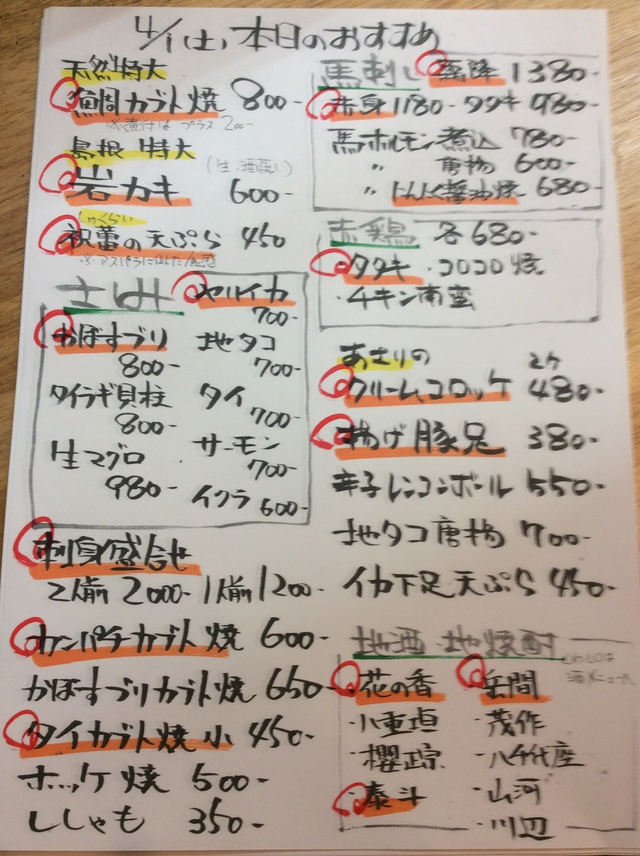 4/1(土)本日のおすすめ
天然特大
鯛カブト焼 800-
※煮付はプラス200-
島根 特大
(生、酒蒸し)
岩カキ 600-
しゅくらい
祝蕾の天ぷら 450
さしみ
ヤリイカ 700-
かぼすブリ 800-
地タコ 700-
タイラギ貝柱 800-
タイ 700-
生マグロ 980-
サーモン 700-
イクラ 600-
刺身盛合せ
2人前 2000- 1人前 1200-
カンパチカブト焼 600-
かぼすブリカブト焼 650-
タイカブト焼 小 450-
ホッケ焼 500-
ししゃも 350-
馬刺し 霜降 1380-
赤身 1180- タタキ 980-
馬ホルモン煮込 780-
〃 唐揚 600-
〃 にんにく醤油焼 680-
赤鶏 各680-
タタキ ・コロコロ焼
・チキン南蛮
あさりの 2ケ
クリームコロッケ 480-
揚げ豚足 380-
辛子レンコンボール 550-
地タコ唐揚 700-
イカ下足天ぷら 450-
地酒・地焼酎
くわしくは
酒メニューへ
花の香
・八重垣
・櫻政宗
泰斗
岳間
・茂作
・八千代座
・山河
・川辺